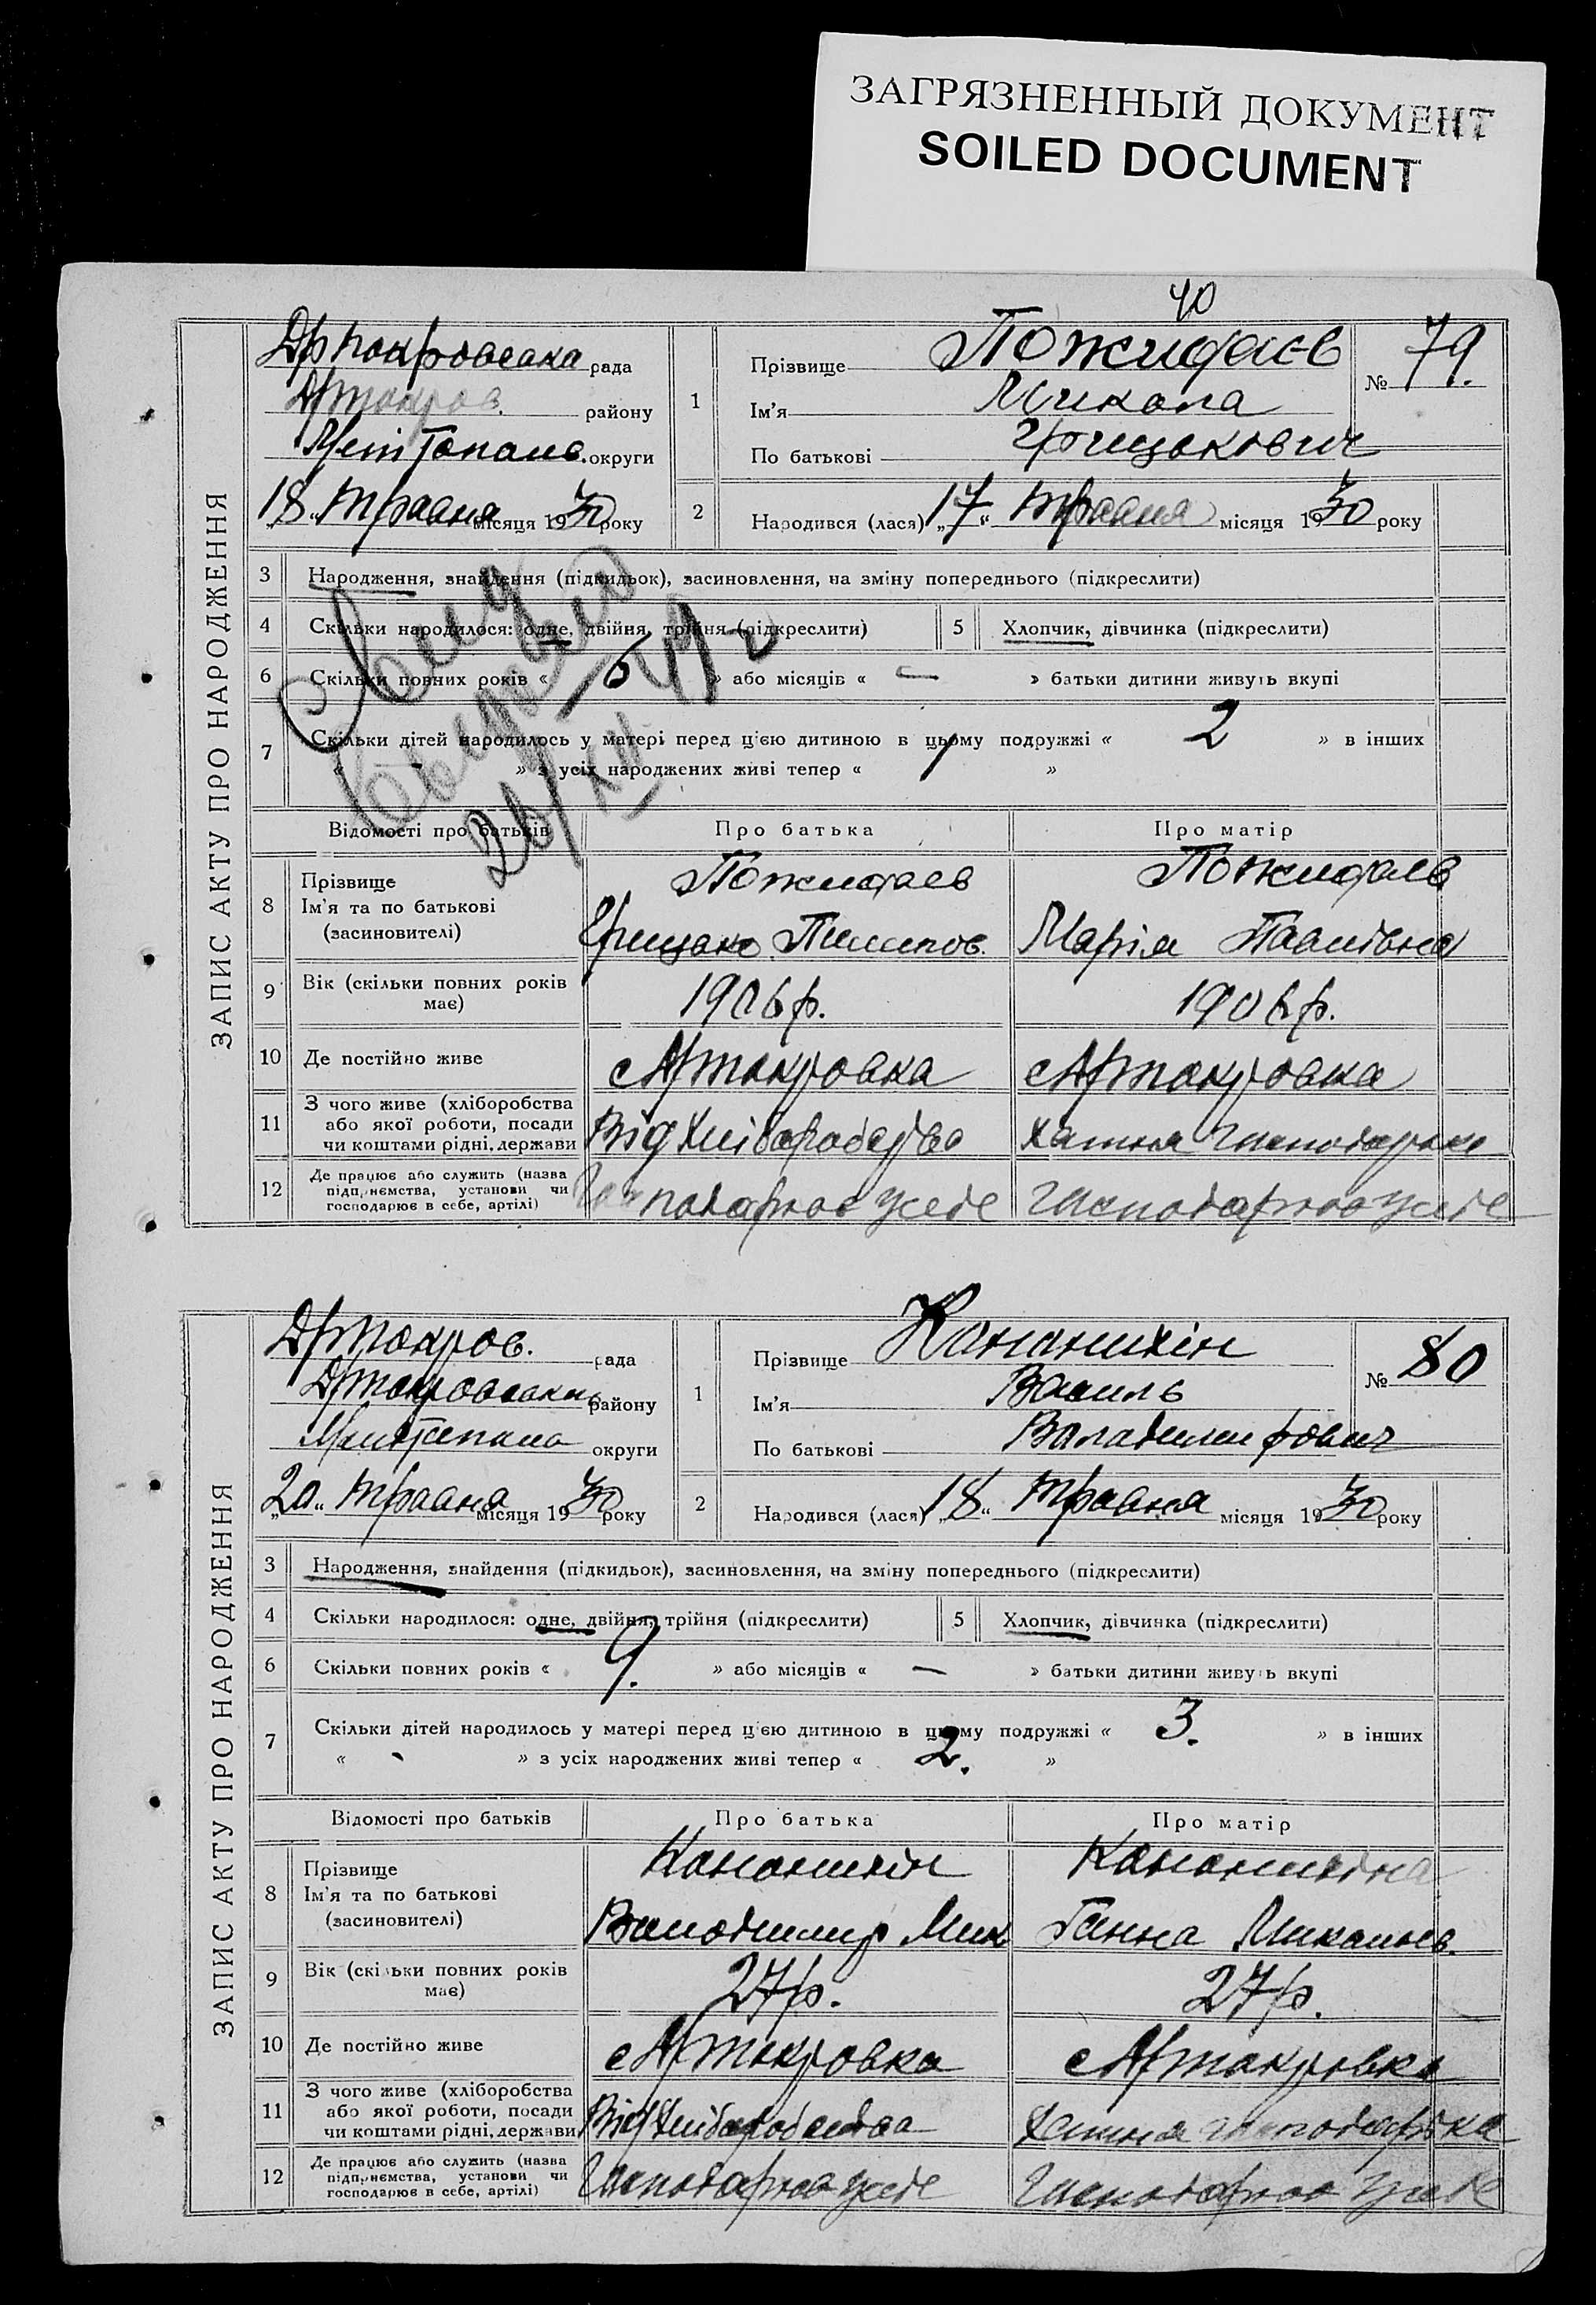 ЗАГРЯЗНЕННЫЙ ДОКУМЕНТ
SOILED DOCUMENT
40
ЗАПИС АКТУ ПРО НАРОДЖЕННЯ
рада
району
округи
18 „ травня місяця 1930 року
1
Прізвище Пожидаєв
Ім'я Микола
По батькові Грицькович
№ 79.
2
Народився (лася) „17“ травня місяця 1930 року
3 Народження, знайдення (підкидьок), засиновлення, на зміну попереднього (підкреслити)
4 Скільки народилося: одне, двійня, трійня (підкреслити)
5 Хлопчик, дівчинка (підкреслити)
6 Скільки повних років « 6 » або місяців « — » батьки дитини живуть вкупі
7 Скільки дітей народилось у матері перед цією дитиною в цьому подружжі « 2 » в інших
« » з усіх народжених живі тепер « 1 »
Відомості про батьків
Про батька
Про матір
8 Прізвище
Ім'я та по батькові
(засиновителі)
Пожидаев
Грицько Пилипов.
Пожидаев
Марія Павлівна
9 Вік (скільки повних років має)
1906 р.
1906 р.
10 Де постійно живе
11 З чого живе (хліборобства
або якої роботи, посади
чи коштами рідні, держави
Від хліборобства
хатня господарка
12 Де працює або служить (назва
підприємства, установи чи
господарює в себе, артілі)
Господарює у себе
Господарює у себе
ЗАПИС АКТУ ПРО НАРОДЖЕННЯ
рада
району
округи
„20“ травня місяця 1930 року
1
Прізвище Кананихін
Ім'я Василь
По батькові Володимирович
№ 80
2
Народився (лася) „18“ травня місяця 1930 року
3 Народження, знайдення (підкидьок), засиновлення, на зміну попереднього (підкреслити)
4 Скільки народилося: одне, двійня, трійня (підкреслити)
5 Хлопчик, дівчинка (підкреслити)
6 Скільки повних років « 9. » або місяців « — » батьки дитини живуть вкупі
7 Скільки дітей народилось у матері перед цією дитиною в цьому подружжі « 3. » в інших
« » з усіх народжених живі тепер « 2. »
Відомості про батьків
Про батька
Про матір
8 Прізвище
Ім'я та по батькові
(засиновителі)
Кананихін
Володимир Мик
Кананихіна
Ганна Миколаев.
9 Вік (скільки повних років має)
27 р.
27 р.
10 Де постійно живе
11 З чого живе (хліборобства
або якої роботи, посади
чи коштами рідні, держави
Від хліборобства
Хатня господарка
12 Де працює або служить (назва
підприємства, установи чи
господарює в себе, артілі)
Господарює у себе
Господарює у себе